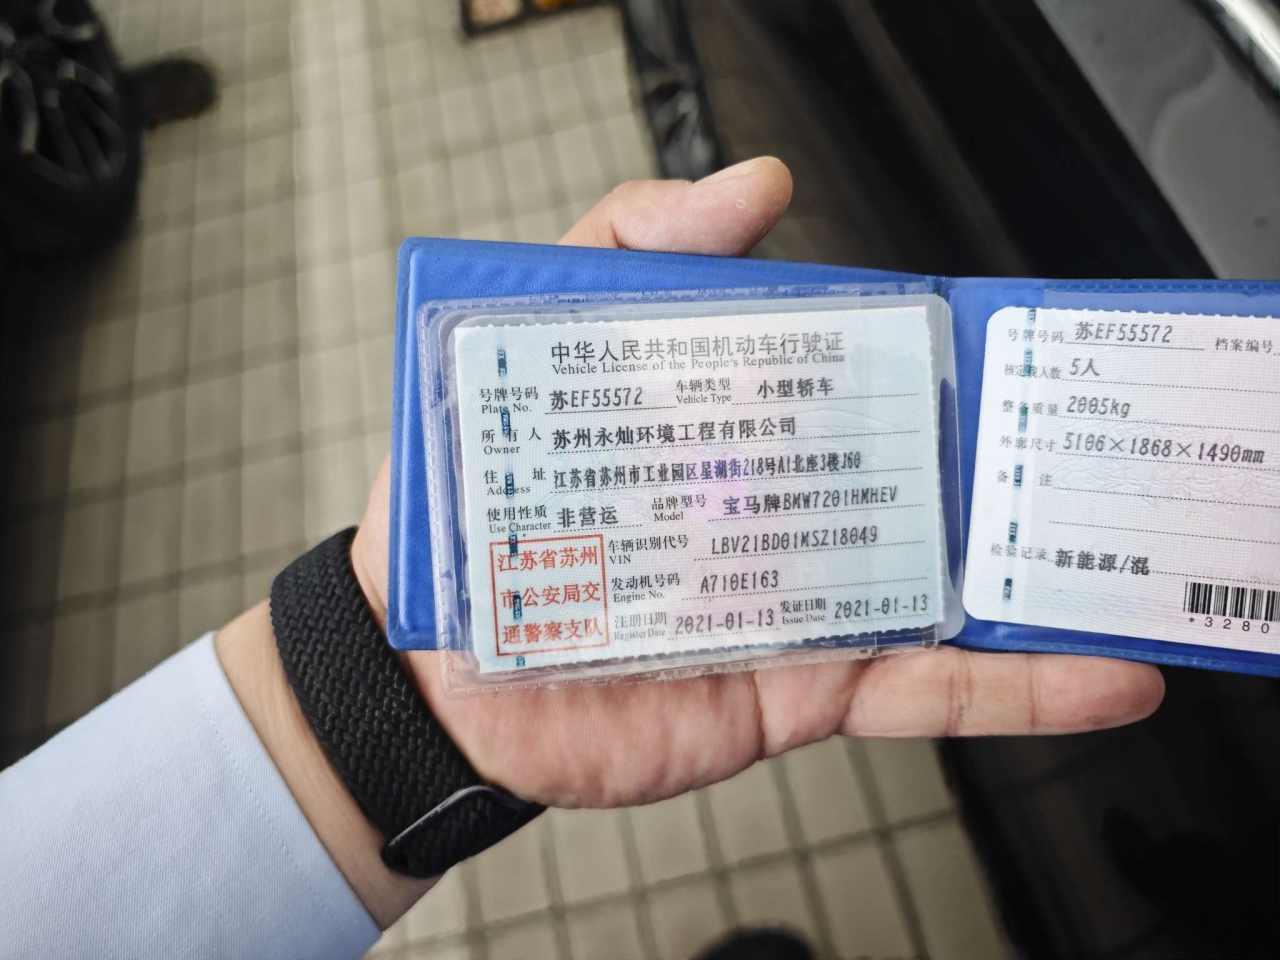 中华人民共和国机动车行驶证
Vehicle License of the People's Republic of China
号牌号码 苏EF55572 车辆类型 小型轿车
Plate No. Vehicle Type
所有人 苏州永灿环境工程有限公司
Owner
住址 江苏省苏州市工业园区星湖街218号A1北座3楼J60
Address
使用性质 非营运 品牌型号 宝马牌BMW7201HMHEV
Use Character Model
江苏省苏州
市公安局交
通警察支队
车辆识别代号 LBV21BD01MSZ18049
VIN
发动机号码 A710E163
Engine No.
注册日期 2021-01-13 发证日期 2021-01-13
Register Date Issue Date
号牌号码 苏EF55572 档案编号
核定载人数 5人
整备质量 2005kg
外廓尺寸 5106×1868×1490mm
备注
检验记录 新能源/混
*3280